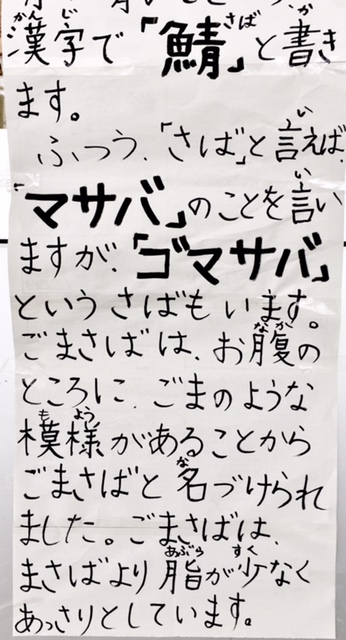 漢字で「鯖」と書き
ます。
ふつう、「さば」と言えば、
「マサバ」のことを言い
ますが、「ゴマサバ」
というさばもいます。
ごまさばは、お腹の
ところに、ごまのような
模様があることから
ごまさばと名づけられ
ました。ごまさばは、
まさばより脂が少なく
あっさりとしています。